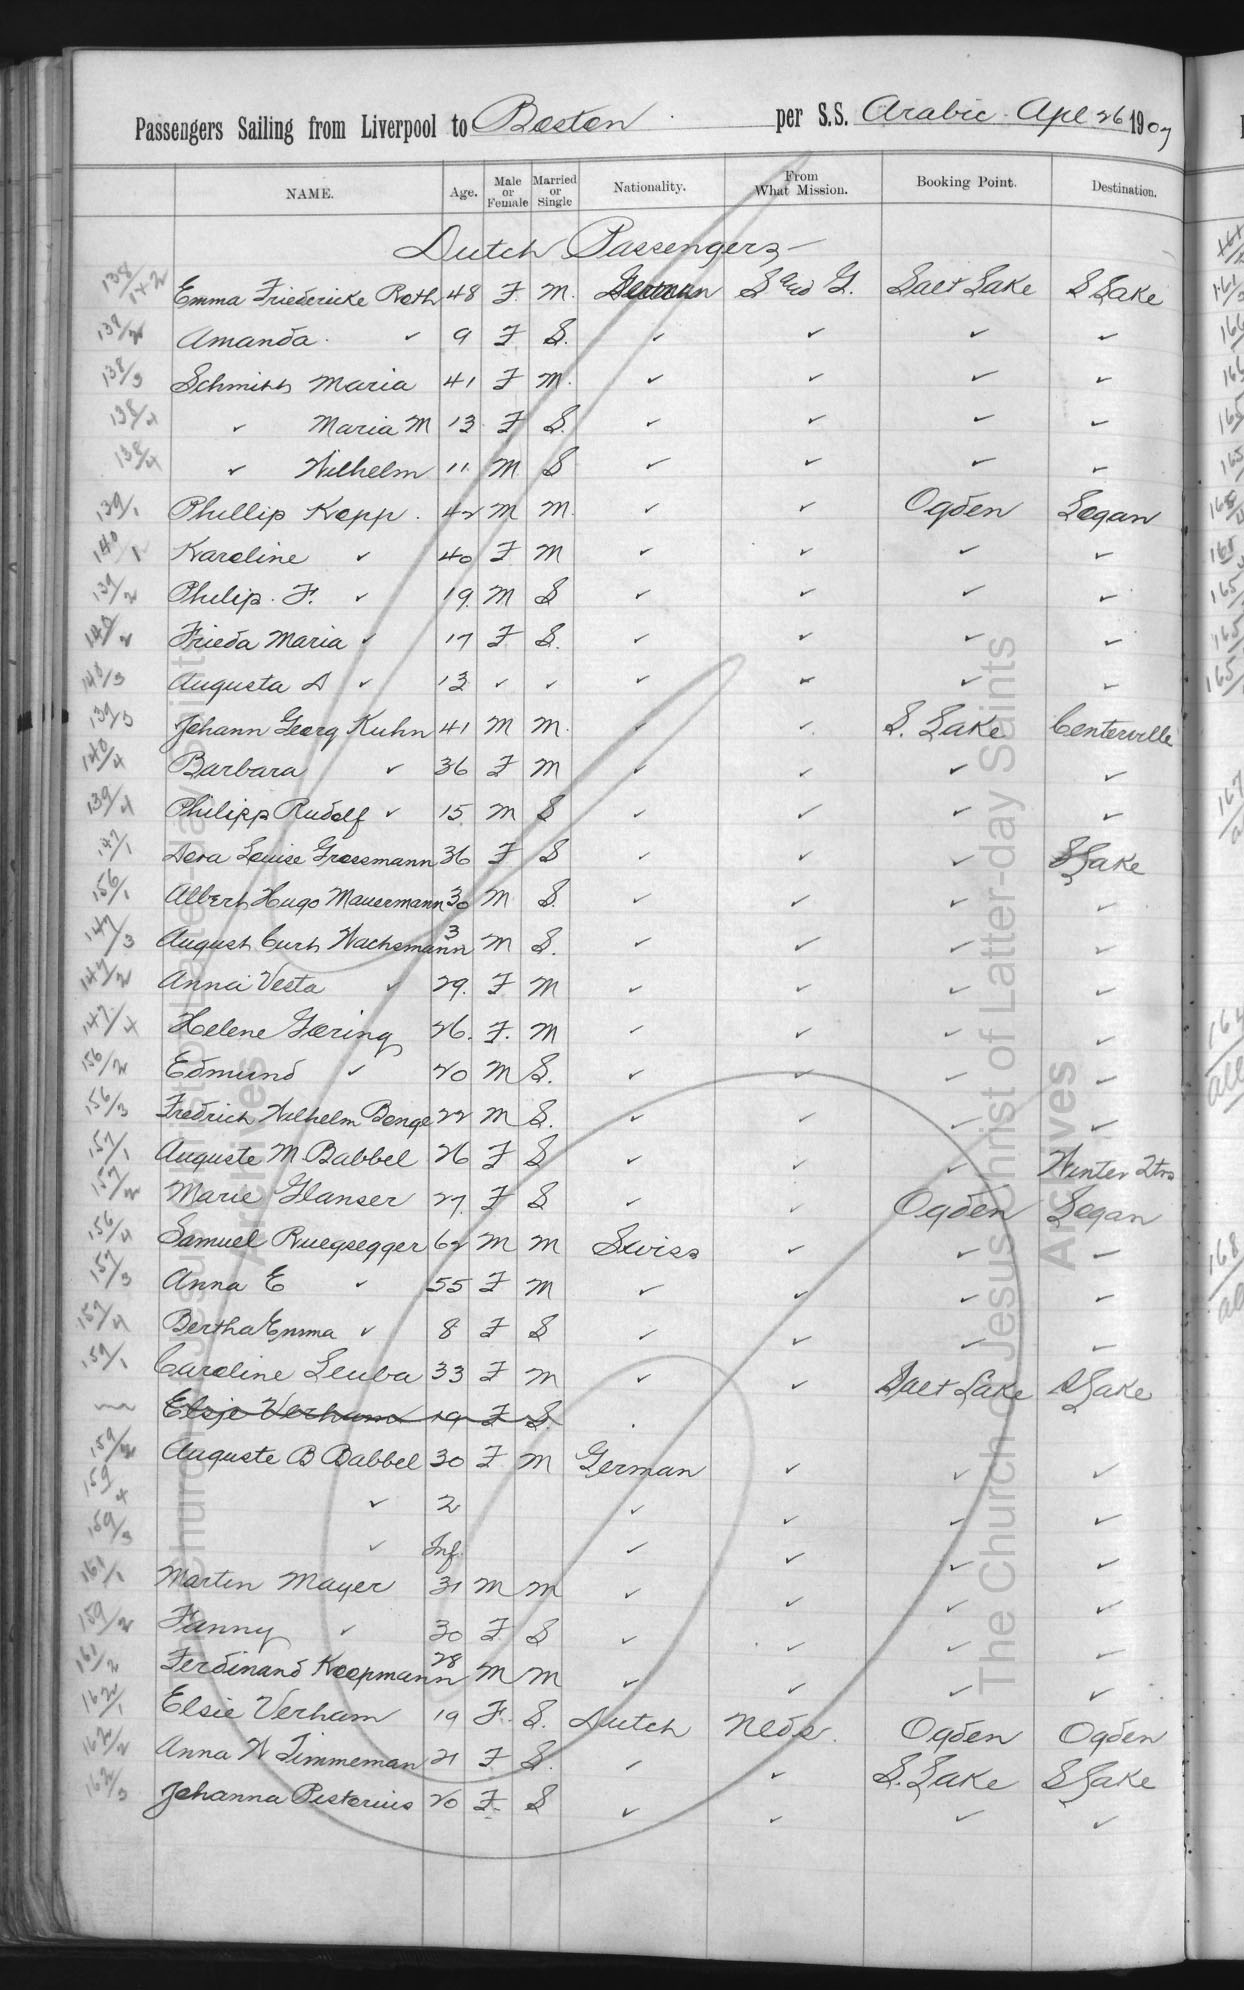 Passengers Sailing from Liverpool to Boston per S.S. Arabic Apl 26 1907
NAME. Age. Male or Female Married or Single Nationality. From What Mission. Booking Point. Destination.
Dutch Passengers
138/142 Emma Friedericke Roth 48 F M. German S and G. Salt Lake S Lake
139/2 Amanda ✓ 9 F S. ✓ ✓ ✓ ✓
138/3 Schmitt Maria 41 F M. ✓ ✓ ✓ ✓
138/4 ✓ Maria M 13 F S. ✓ ✓ ✓ ✓
138/4 ✓ Wilhelm 11 M S ✓ ✓ ✓ ✓
139/1 Phillip Kopp. 42 M M. ✓ ✓ Ogden Logan
140/1 Karoline ✓ 40 F M ✓ ✓ ✓ ✓
139/2 Philip. F. ✓ 19 M S ✓ ✓ ✓ ✓
140/2 Frieda Maria ✓ 17 F S. ✓ ✓ ✓ ✓
140/3 Augusta A ✓ 13 ✓ ✓ ✓ ✓ ✓ ✓
139/3 Johann Georg Kuhn 41 M M. ✓ ✓ S. Lake Centerville
140/4 Barbara ✓ 36 F M ✓ ✓ ✓ ✓
139/4 Philipp Rudolf ✓ 15 M S ✓ ✓ ✓ ✓
147/1 Dora Louise Grossmann 36 F S ✓ ✓ ✓ S Lake
156/1 Albert Hugo Mauermann 30 M S. ✓ ✓ ✓ ✓
147/3 August Curt Wachsmann 3 M S. ✓ ✓ ✓ ✓
147/2 Anna Vesta ✓ 29. F M ✓ ✓ ✓ ✓
147/4 Helene Goering 26. F. M ✓ ✓ ✓ ✓
156/2 Edmund ✓ 20 M S. ✓ ✓ ✓ ✓
156/3 Fredrich Wilhelm Benge 22 M S. ✓ ✓ ✓ ✓
157/1 Auguste M Babbel 26 F S ✓ ✓ ✓ Winter Qtrs
157/2 Marie Glanser 27. F S ✓ ✓ Ogden Logan
156/4 Samuel Ruegsegger 62 M M Swiss ✓ ✓ ✓
157/3 Anna E ✓ 55 F M ✓ ✓ ✓ ✓
159/4 Bertha Emma ✓ 8 F S ✓ ✓ ✓ ✓
159/1 Caroline Leuba 33 F M ✓ ✓ Salt Lake S Lake
Elsje Verham 19 F S.
159/2 Auguste B Babbel 30 F M German ✓ ✓ ✓
159/4 ✓ 2 ✓ ✓ ✓ ✓
159/3 ✓ Inf. ✓ ✓ ✓ ✓
161/1 Martin Mayer 31 M M ✓ ✓ ✓ ✓
159/2 Fanny ✓ 30 F S ✓ ✓ ✓ ✓
161/2 Ferdinand Koopmann 28 M M ✓ ✓ ✓ ✓
162/1 Elsie Verham 19 F. S. Dutch Neds. Ogden Ogden
162/2 Anna W Timmeman 21 F S. ✓ ✓ S. Lake S Lake
162/3 Johanna Pistorius 20 F. S ✓ ✓ ✓ ✓
The Church of Jesus Christ of Latter-day Saints
Archives
The Church of Jesus Christ of Latter-day Saints
Archives